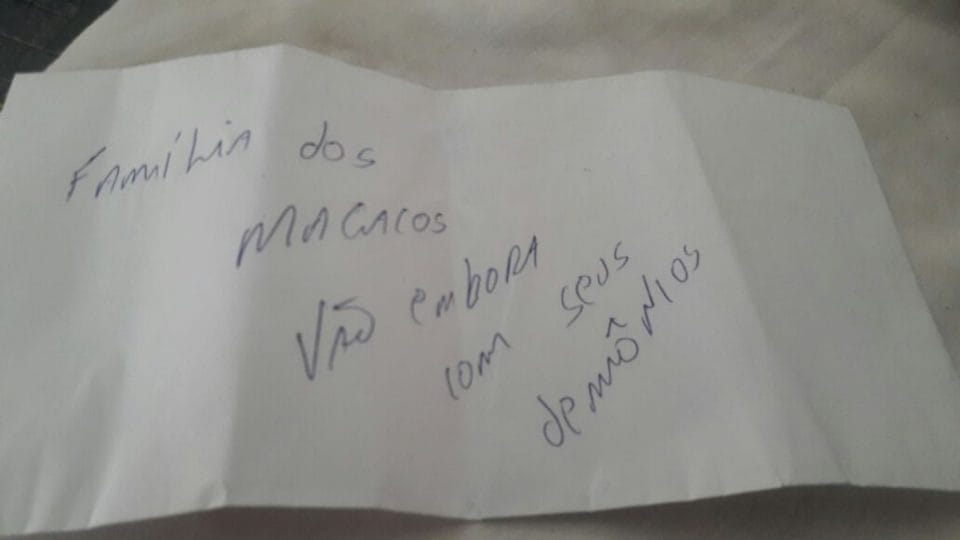 Família dos
MACACOS
Vão embora
com seus
demônios